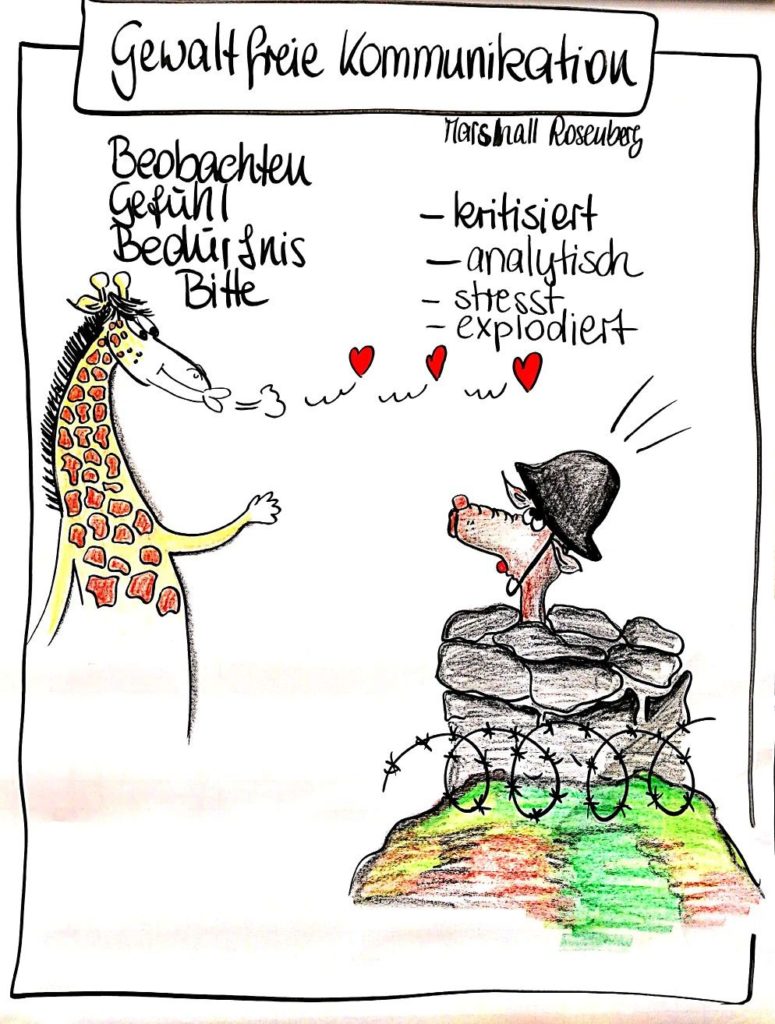 Gewaltfreie Kommunikation
Marshall Rosenberg
Beobachten
Gefühl
Bedürfnis
Bitte
– kritisiert
– analytisch
– stresst
– explodiert